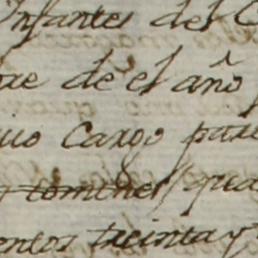 Infantes del C
re de el año
uo Cargo par
tomines qua
entos treinta y